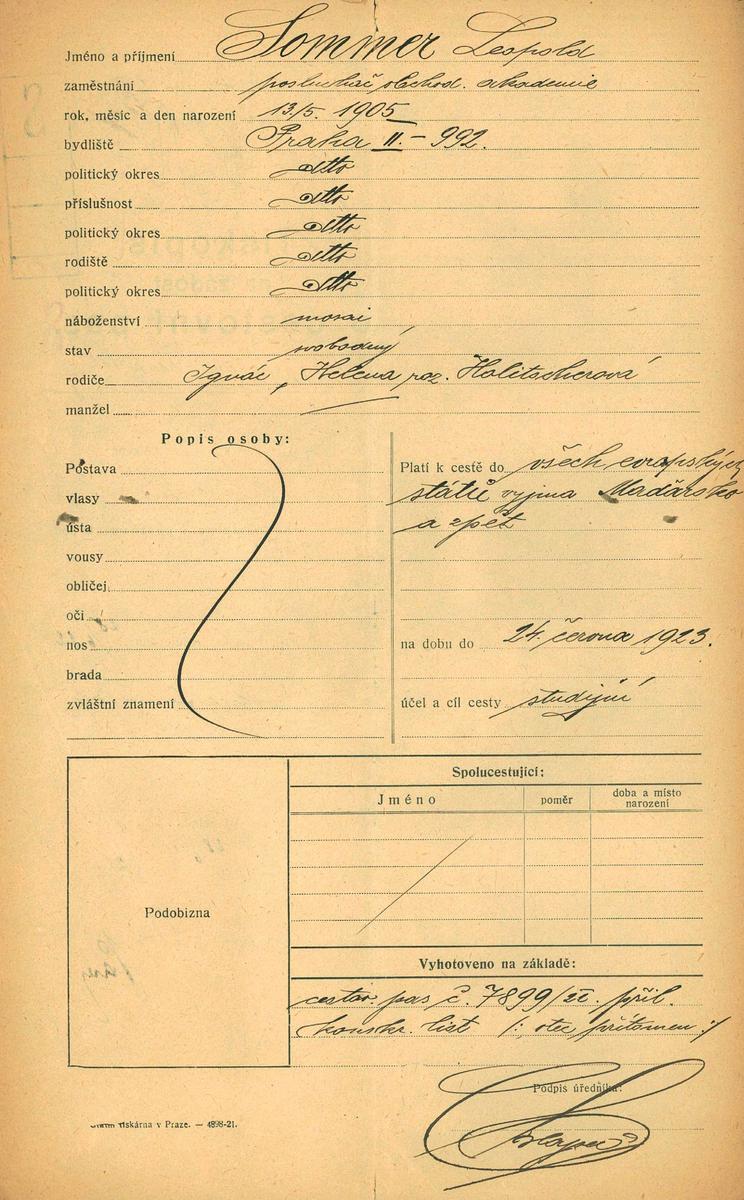 Jméno a příjmení Sommer Leopold
zaměstnání posluchač obchod. akademie
rok, měsíc a den narození 13/5. 1905
bydliště Praha II. – 992.
politický okres dtto
příslušnost dtto
politický okres dtto
rodiště dtto
politický okres dtto
náboženství mosai
stav svobodný
rodiče Ignác, Helena roz. Holitscherová
manžel
Popis osoby:
Postava
vlasy
ústa
vousy
obličej
oči
nos
brada
zvláštní znamení
Platí k cestě do všech evropských
států vyjma Maďarsko
a zpět
na dobu do 24. června 1923.
účel a cíl cesty studijní
Podobizna
Spolucestující:
Jméno poměr doba a místo
narození
Vyhotoveno na základě:
cestov. pas č. 7899/ příl.
konskr. list /: otec přítomen :/
Podpis úředníka:
tiskárna v Praze. — 4898-21.